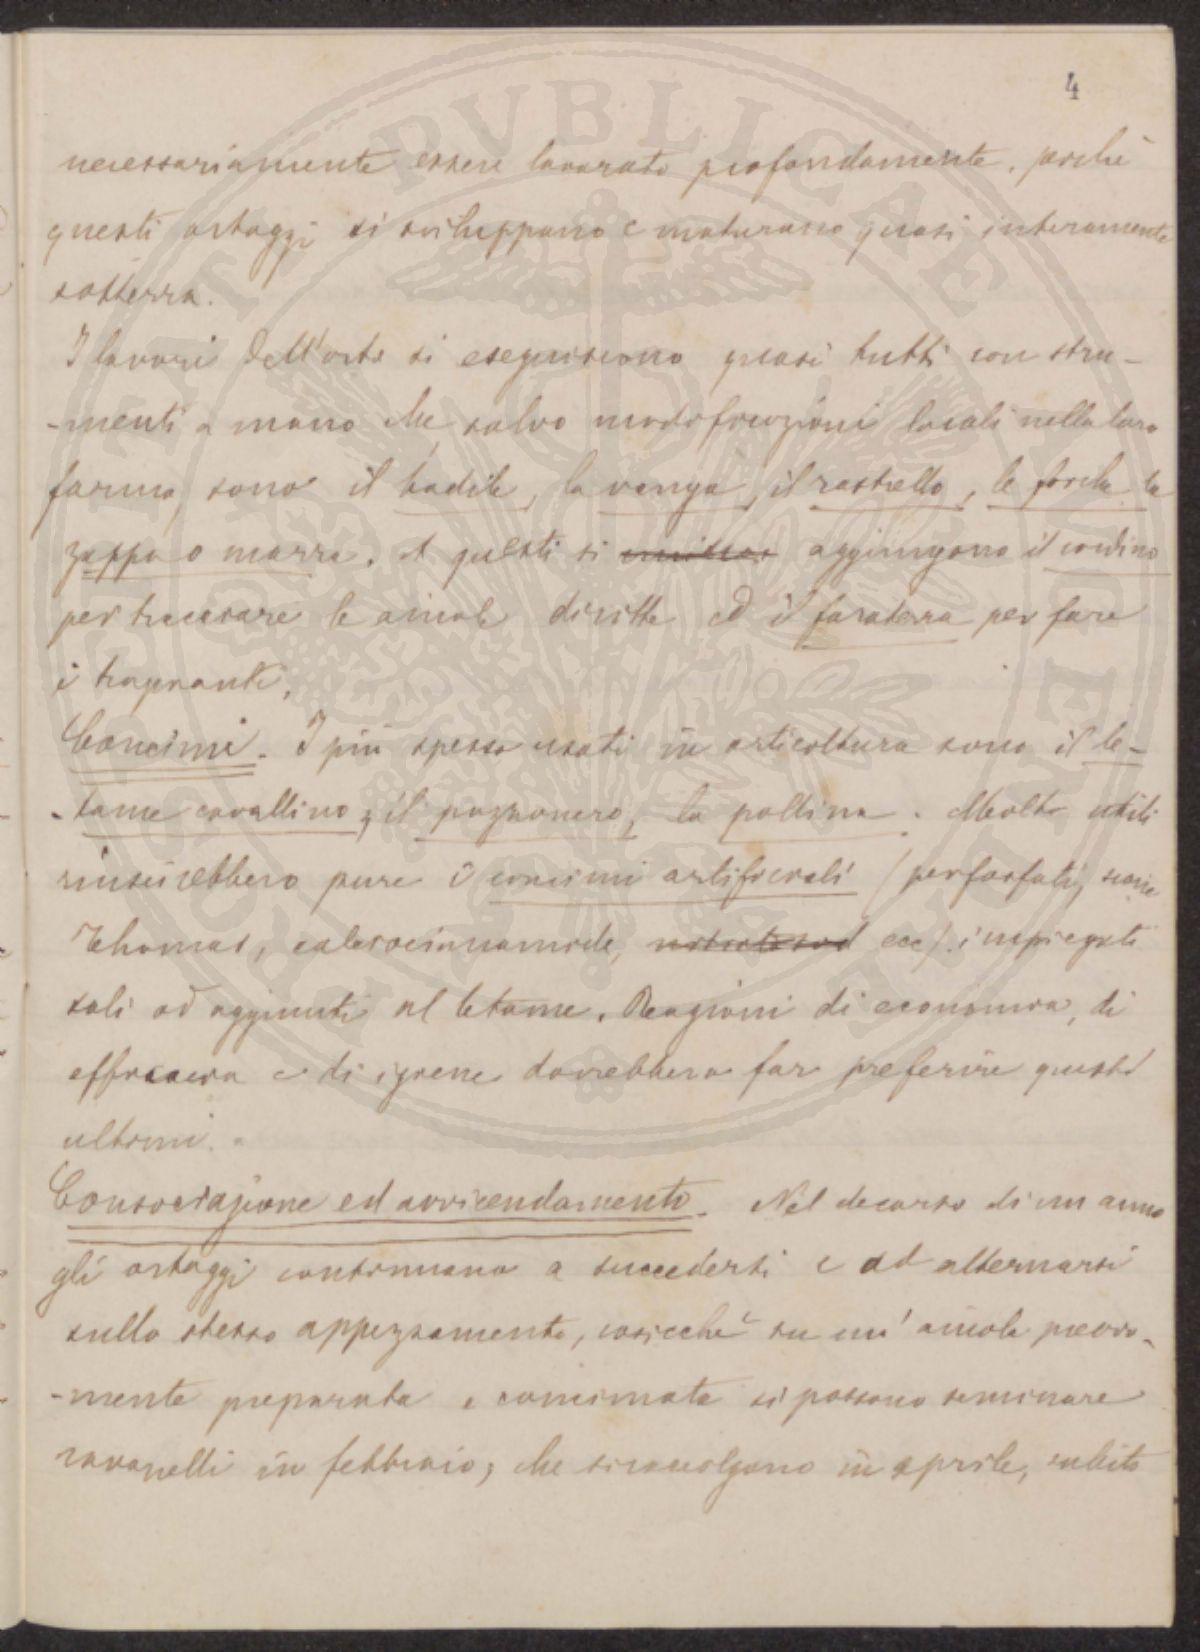 4
necessariamente essere lavorato profondamente, perchè
questi ortaggi si sviluppano e maturano quasi interamente
sotterra.
I lavori dell'orto si eseguiscono quasi tutti con stru-
-menti a mano che, salvo modificazioni locali nella loro
forma, sono il badile, la vanga, il rastrello, le forche la
zappa o marra. A questi si aggiungono il cordino
per tracciare le aiuole diritte ed il foraterra per fare
i trapianti.
Concimi. I più spesso usati in orticoltura sono il le-
-tame cavallino, il pozzonero, la pollina. Molto utili
riuscirebbero pure i concimi artificiali (perfosfati, scorie
Thomas, calciocianamide, ecc) impiegati
soli od aggiunti al letame. Ragioni di economia, di
efficacia e di igiene dovrebbero far preferire questi
ultimi.
Consociazione ed avvicendamento. Nel decorso di un anno
gli ortaggi continuano a succedersi e ad alternarsi
sullo stesso appezzamento, cosicchè su un' aiuola previa-
-mente preparata e concimata si possono seminare
ravanelli in febbraio, che si raccolgono in aprile, subito
PVBLICAE